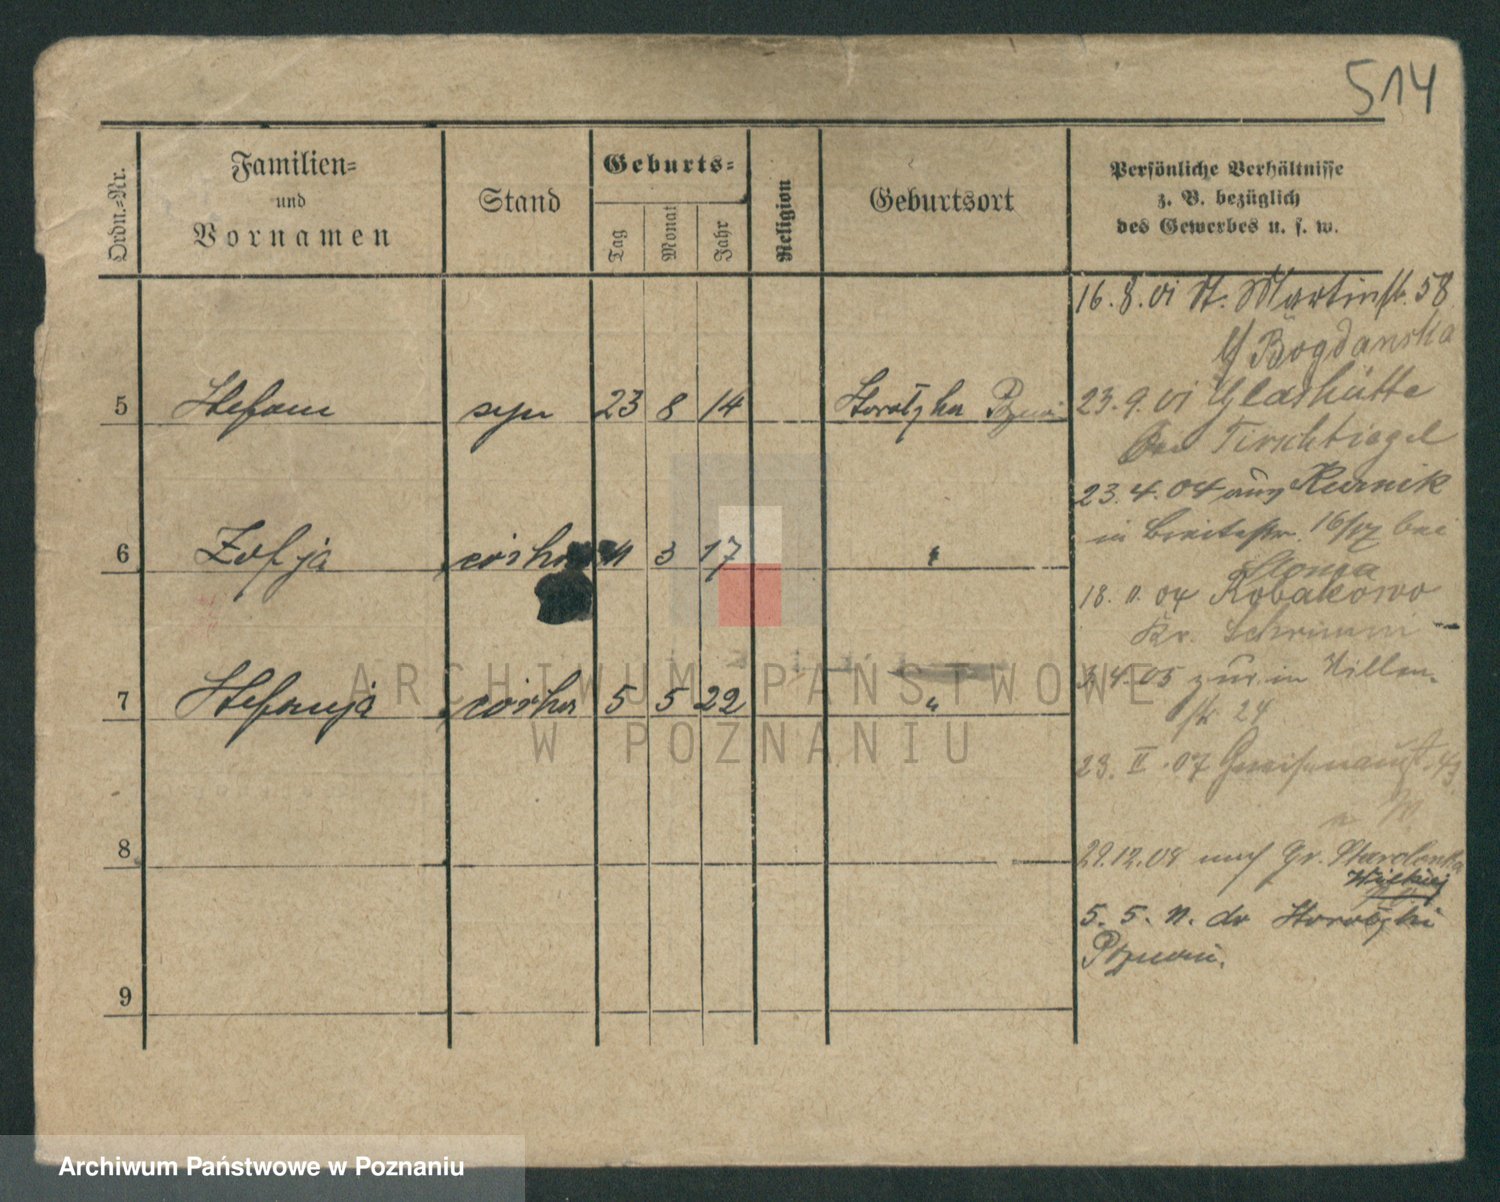 514
Ordn.-Nr.
Familien-
und
Vornamen
Stand
Geburts-
Tag
Monat
Jahr
Religion
Geburtsort
Persönliche Verhältnisse
z. B. bezüglich
des Gewerbes u. s. w.
16.8.01 St. Martinstr. 58
b/ Bogdanska
5 Stefan syn 23 8 14
23.9.01 Glashütte
bei Tirschtiegel
23.4.04 aus Kurnik
in Breitestr. 16/17 bei
6 Zofja córka 3 17 "
18.11.04 Robakowo
Kr. Schrimm
7 Stefanja córka 5 5 22 "
4.05 zur. in
str 24
23. II .07 Gneisenaust. 43
8
29.12.08 nach Gr. Starolenka
5. 5. 11. do
Poznań.
9
ARCHIWUM PAŃSTWOWE
W POZNANIU
Archiwum Państwowe w Poznaniu